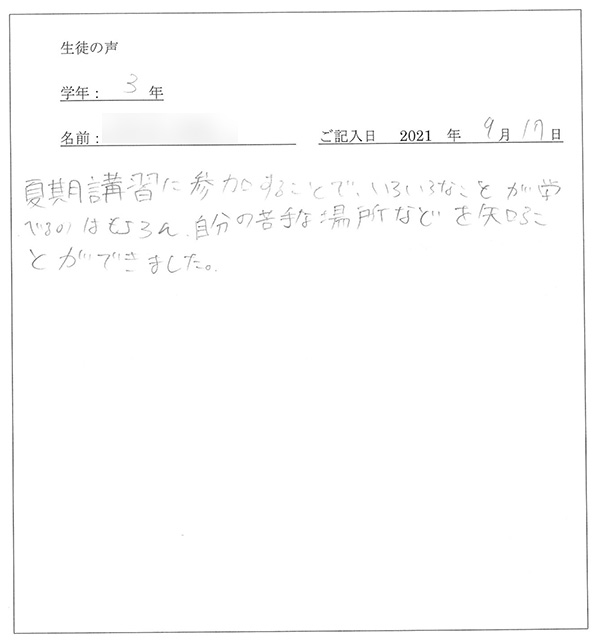 生徒の声
学年： 3 年
名前：
ご記入日 2021 年 9 月 17 日
夏期講習に参加することで、いろいろなことが学
べるのはもちろん、自分の苦手な場所などを知るこ
とができました。